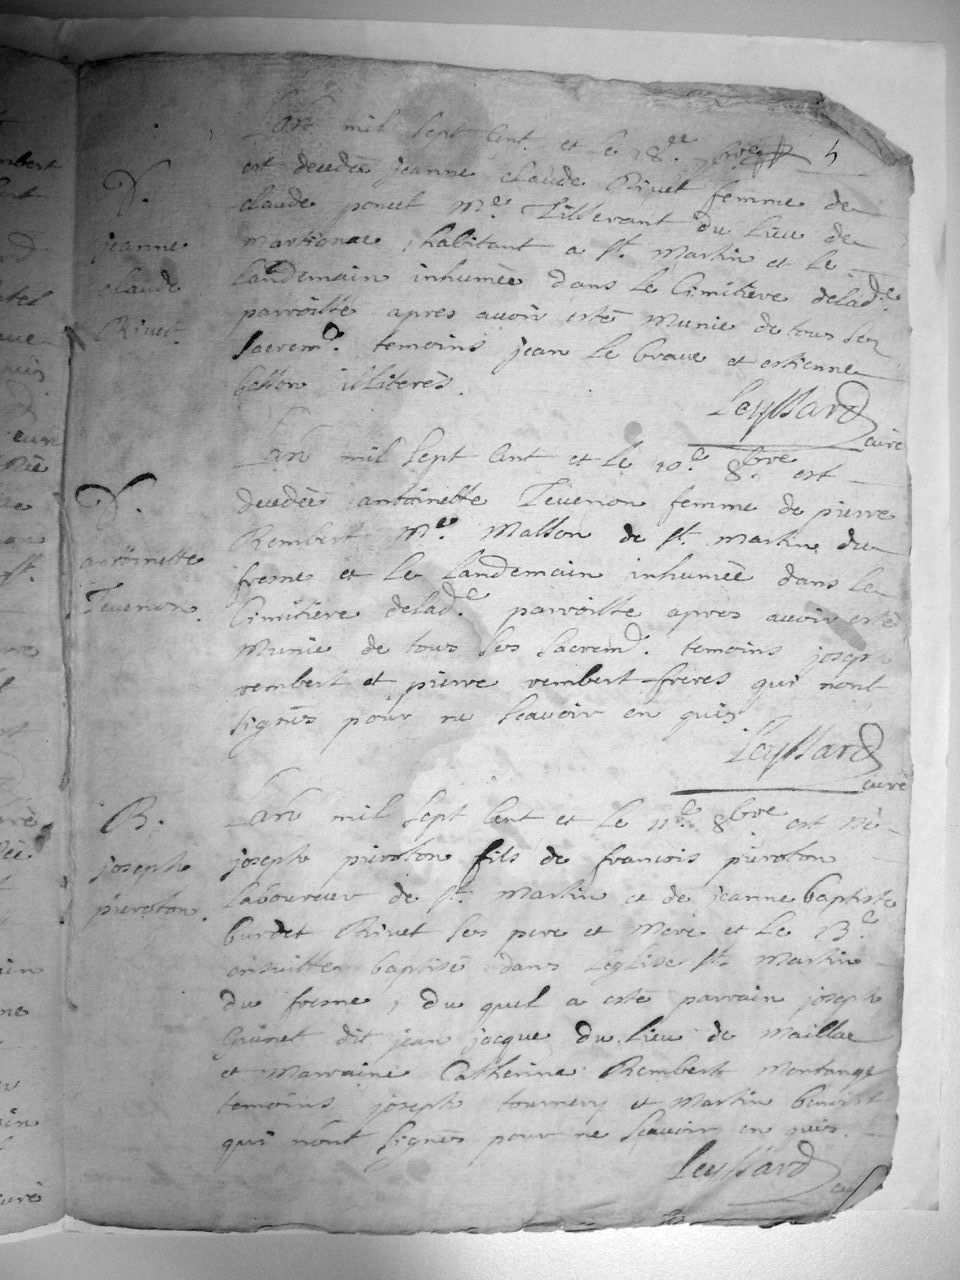 L'an mil sept cent et le 18.e 7bre 5
D. est decedée jeanne claude Rivet femme de
claude poncet M.e Tisserant du Lieu de
jeanne martignac, habitant a st. martin et le
claude Landemain inhumée dans le Cimitière delad.te
Rivet. parroisse apres avoir esté Munie de tous ses
sacrem.ts temoins jean Le brave et estienne
illiteres.
Leyssard curé
L'an mil sept Cent et le 10.e 8bre est
D. decedée antoinette Tevenon femme de pierre
Rembert M.e Masson de st. martin du
antoinette fresne et le Landemain inhumée dans le
Tevenon. Cimitière delad.te parroisse apres avoir esté
Munie de tous ses sacrem.ts temoins joseph
rembert et pierre rembert freres qui n'ont
signés pour ne scavoir en quis
Leyssard curé
B. L'an mil sept Cent et le 11.e 8bre est né
joseph joseph piroton fils de francois piroton
piroton. Laboureur de st. martin et de jeanne baptiste
burdet Rivet ses pere et Mere et le 13.e
ensuitte baptisé dans L'eglise st. Martin
du fresne, du quel a esté parrain joseph
dit jean jacque du Lieu de Maillac
et Marraine Catherine Rembert Montange
temoins joseph tournery et Martin benoist
qui n'ont signés pour ne scavoir en quis.
Leyssard curé